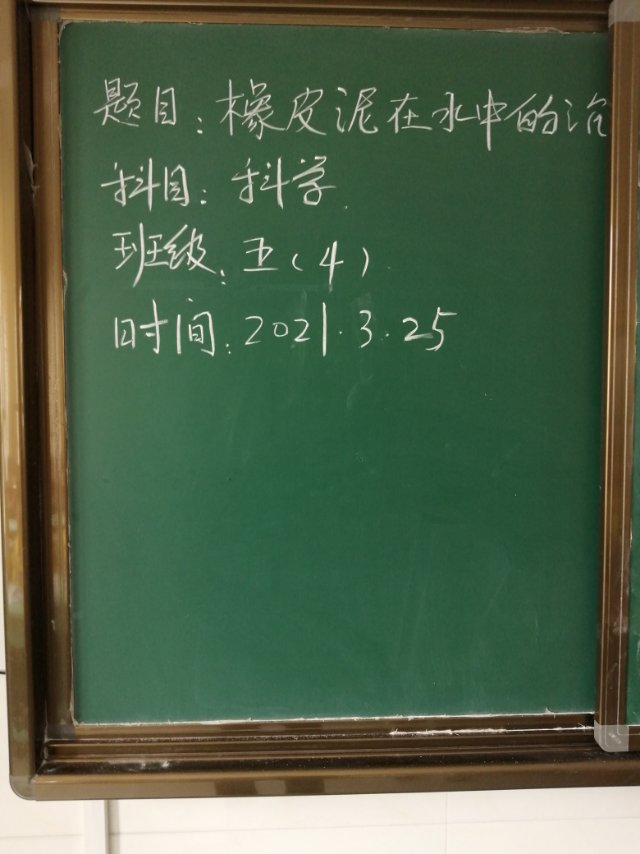 题目：橡皮泥在水中的沉
科目：科学
班级：五（4）
时间：2021.3.25